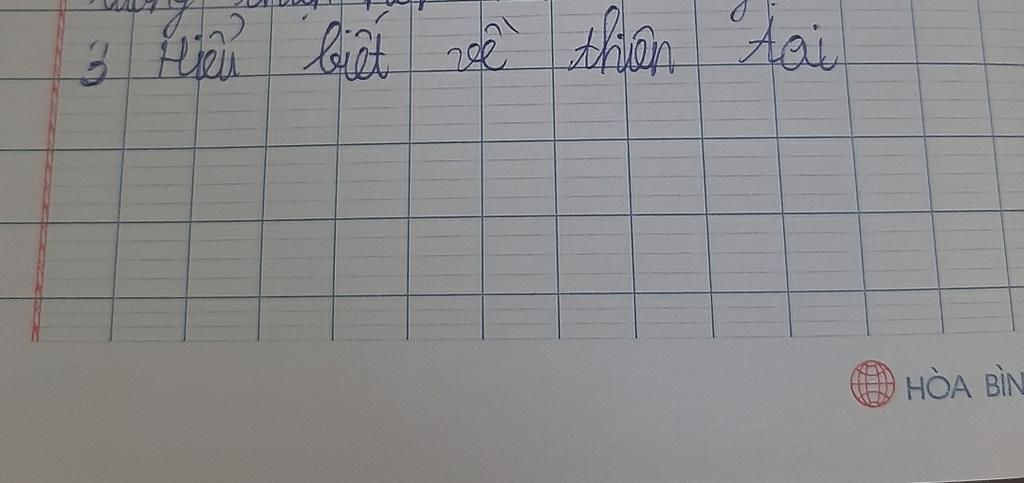 3 Hiểu biết về thiên tai
HÒA BÌN